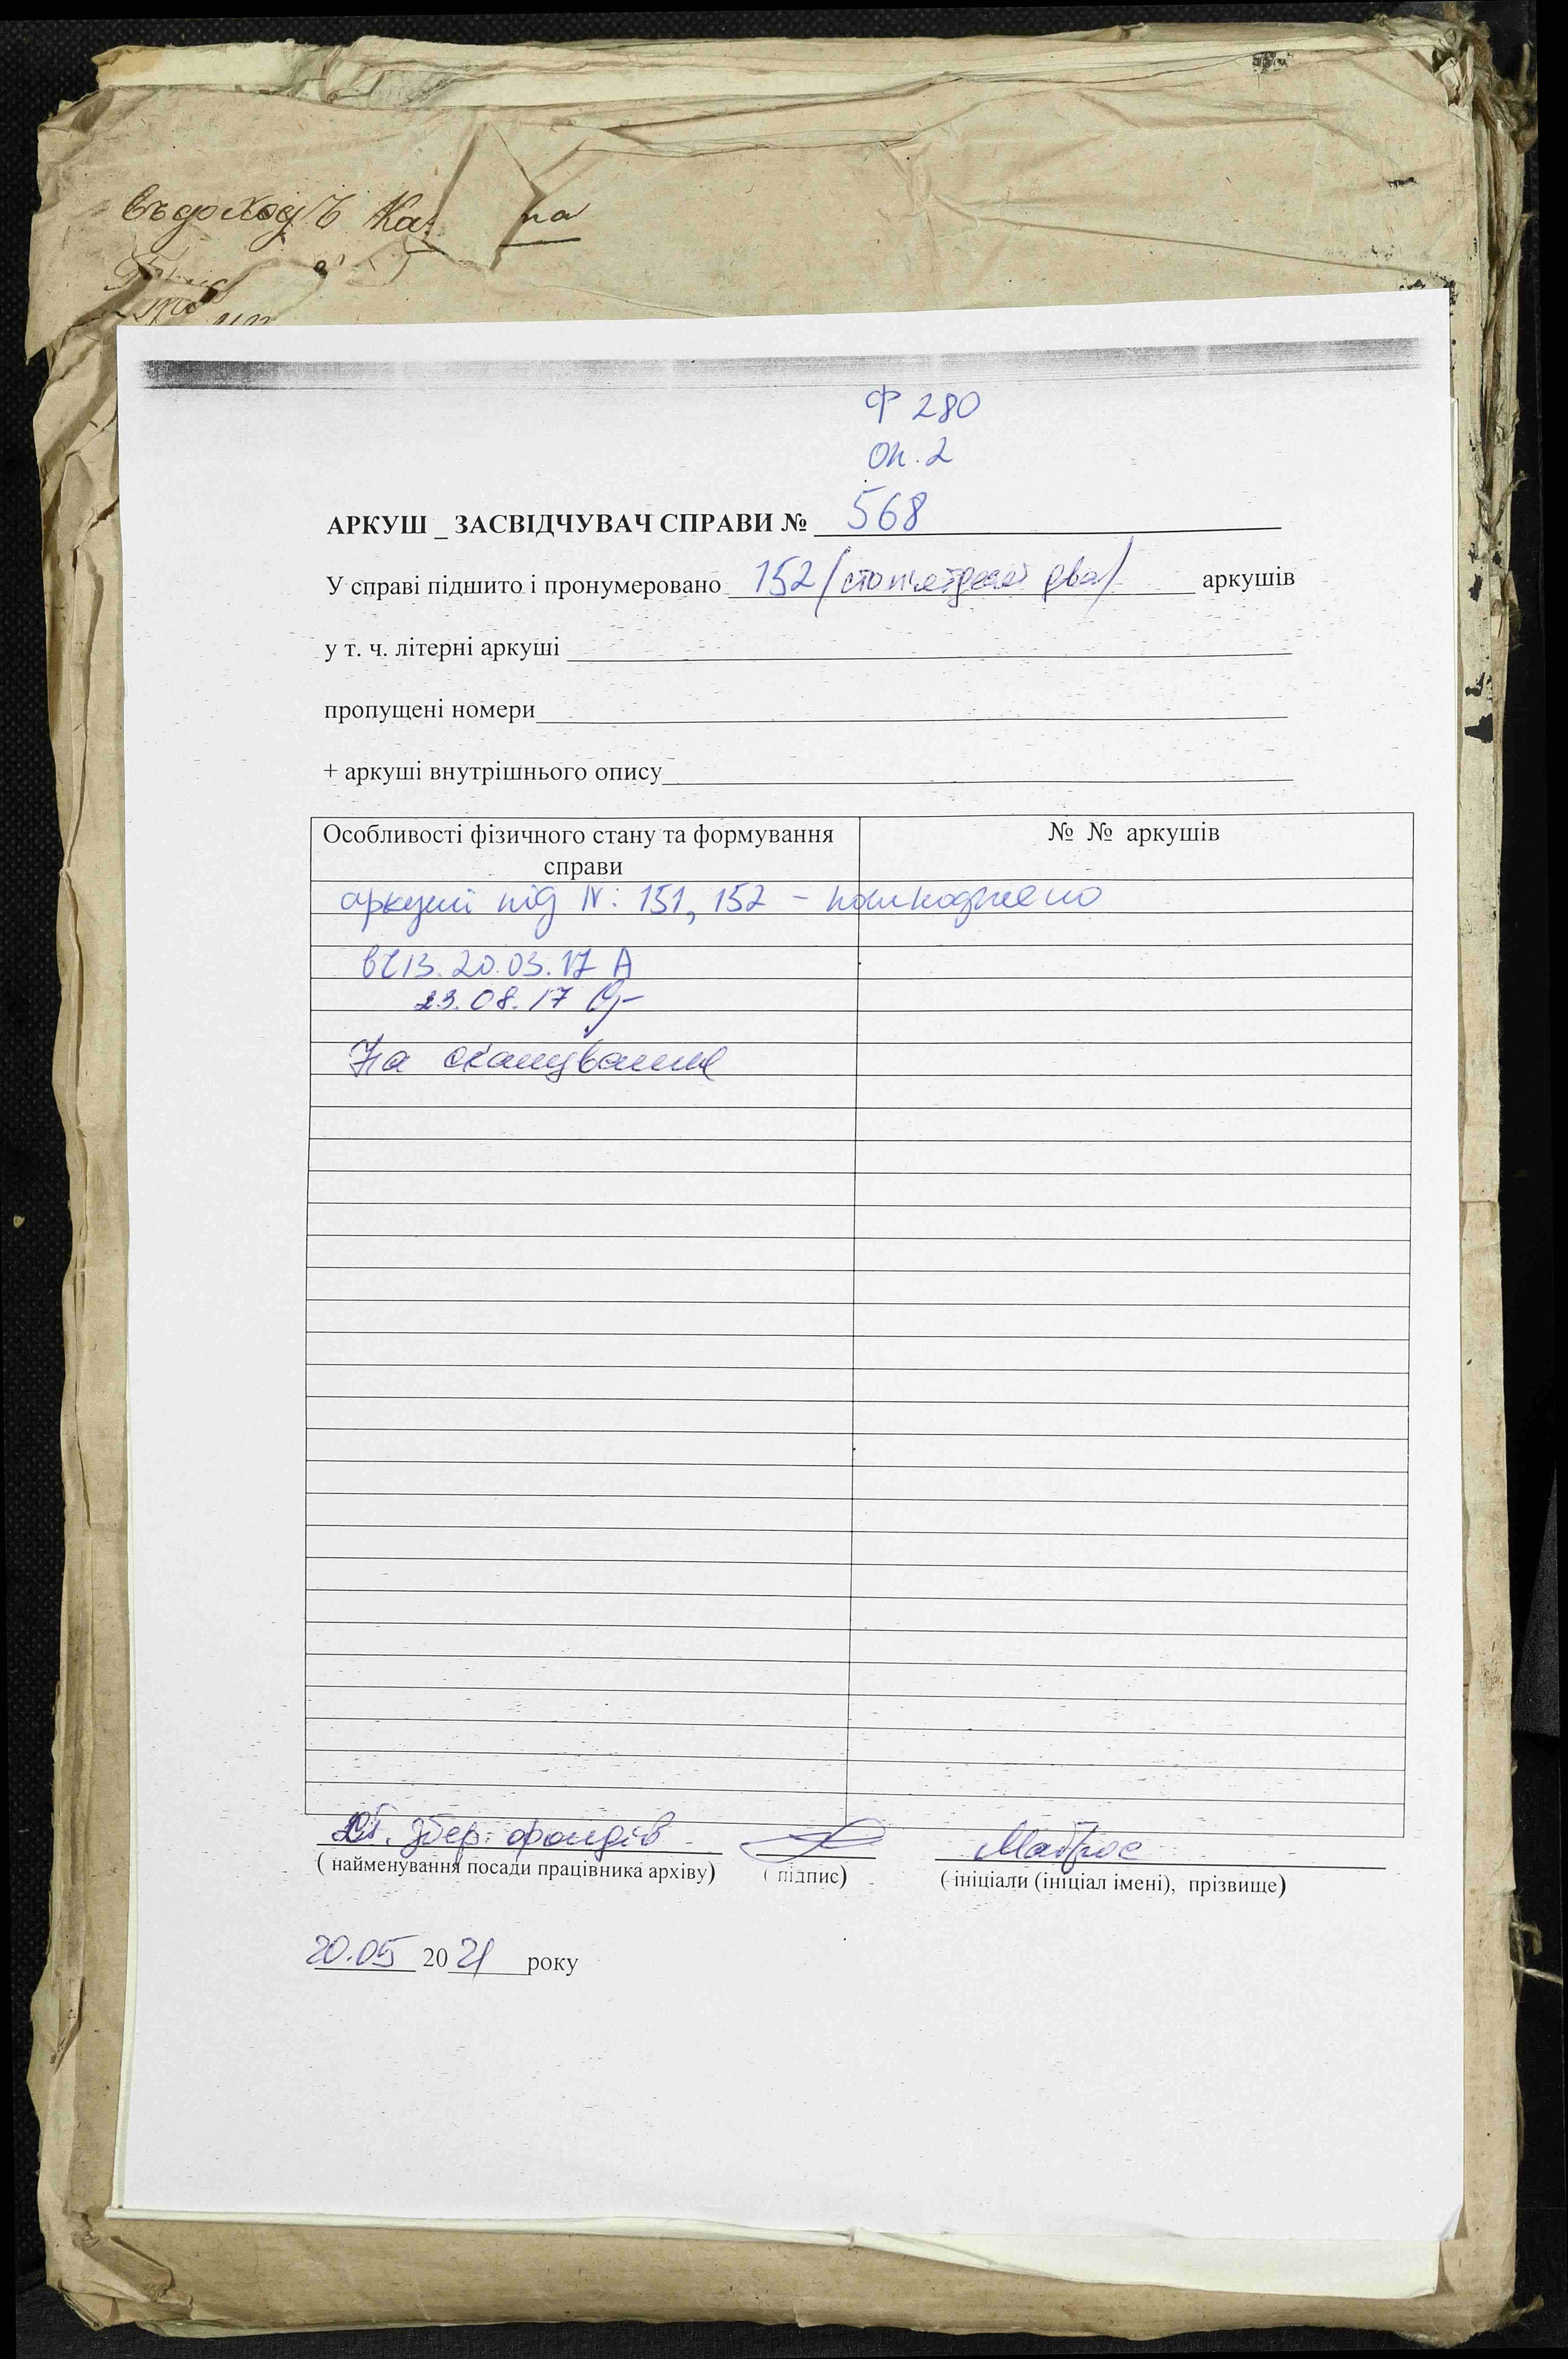 въ доходъ Ка на
Ф 280
Оп. 2
АРКУШ _ ЗАСВІДЧУВАЧ СПРАВИ № 568
У справі підшито і пронумеровано 152 /сто пятдесят два/ аркушів
у т. ч. літерні аркуші
пропущені номери
+ аркуші внутрішнього опису
Особливості фізичного стану та формування справи
№ № аркушів
аркуші під №: 151, 152 - пошкоджено
20.03.17
23.08.17
На сканування
збер. фондів Матрос
( найменування посади працівника архіву) ( підпис) ( ініціали (ініціал імені), прізвище)
20.05 2021 року